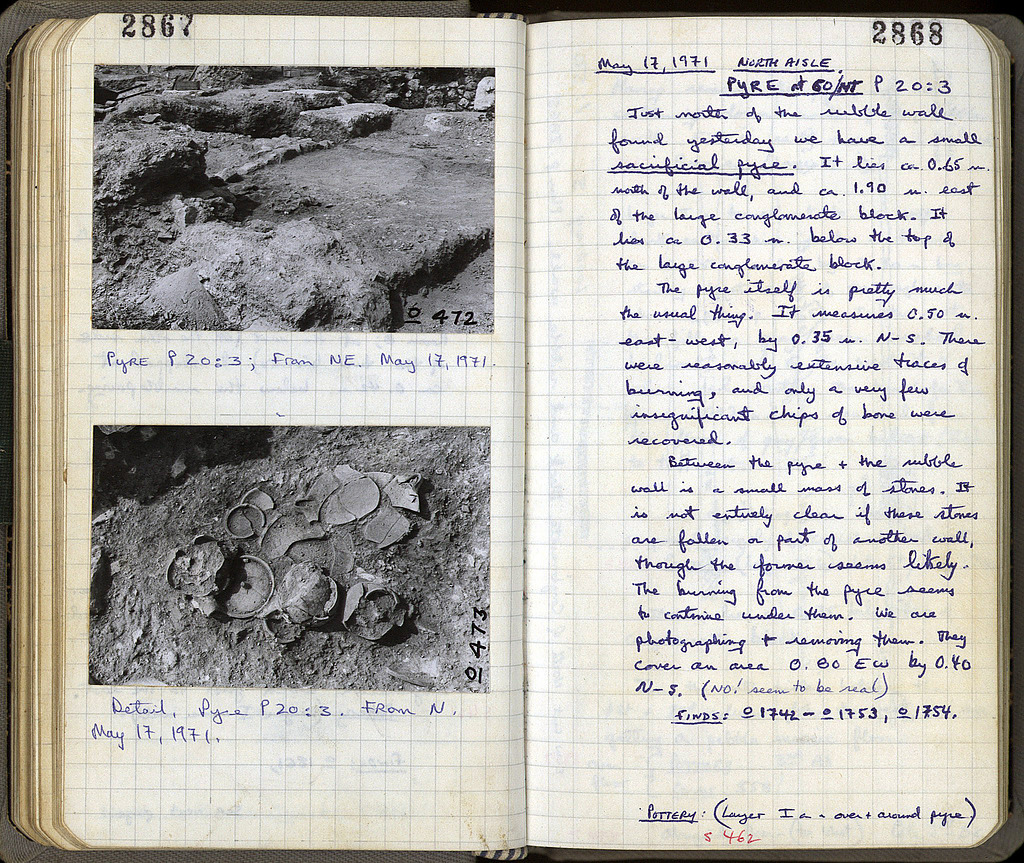 2867
O 472
PYRE P 20:3; From NE. May 17, 1971.
O 473
Detail, Pyre P 20:3. From N.
May 17, 1971.
2868
May 17, 1971 NORTH AISLE.
PYRE at 60/ P 20:3
Just north of the rubble wall
found yesterday we have a small
sacrificial pyre. It lies ca 0.65 m.
north of the wall, and ca. 1.90 m. east
of the large conglomerate block. It
lies ca 0.33 m. below the top of
the large conglomerate block.
The pyre itself is pretty much
the usual thing. It measures 0.50 m.
east-west, by 0.35 m. N-S. There
were reasonably extensive traces of
burning, and only a very few
insignificant chips of bone were
recovered.
Between the pyre + the rubble
wall is a small mass of stones. It
is not entirely clear if these stones
are fallen or part of another wall,
though the former seems likely.
The burning from the pyre seems
to continue under them. We are
photographing + removing them. They
cover an area 0.80 EW by 0.40
N-S. (NO! seem to be real)
FINDS: O 1742 - O 1753, O 1754.
POTTERY: (Layer I a - over + around pyre)
S 462